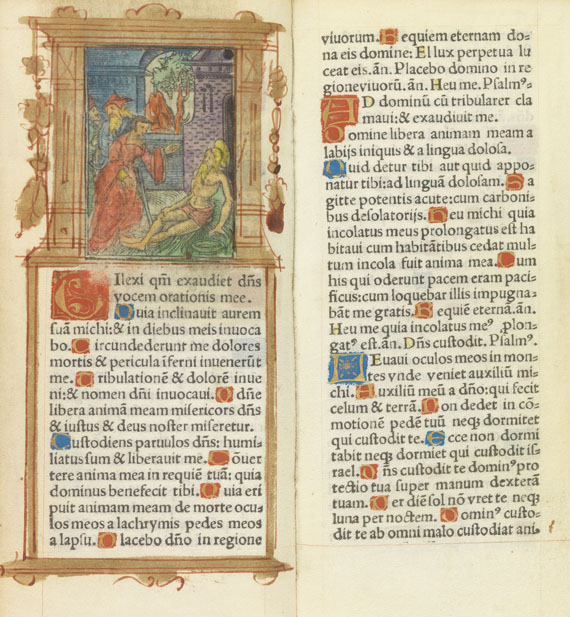 Ilexi qm̄ exaudiet dn̄s
vocem orationis mee.
Quia inclinauit aurem
suā michi: & in diebus meis inuoca
bo. Circundederunt me dolores
mortis & pericula īferni inuenerūt
me. Tribulationē & dolorē inue
ni: & nomen dn̄i inuocaui. O dn̄e
libera animā meam misericors dn̄s
& iustus & deus noster miseretur.
Custodiens paruulos dn̄s: humi-
liatus sum & liberauit me. Cōuer
tere anima mea in requiē tuā: quia
dominus benefecit tibi. Quia eri
puit animam meam de morte ocu-
los meos a lachrymis pedes meos
a lapsu. Placebo dn̄o in regione
viuorum. Requiem eternam do-
na eis domine: Et lux perpetua lu
ceat eis. ān. Placebo domino in re
gione viuorū. ān. Heu me. Psalmꝰ.
AD dominū cū tribularer cla
maui: & exaudiuit me.
Domine libera animam meam a
labijs iniquis & a lingua dolosa.
Quid detur tibi aut quid appo-
natur tibi: ad linguā dolosam. Sa
gitte potentis acute: cum carboni-
bus desolatorijs. Heu michi quia
incolatus meus prolongatus est ha
bitaui cum habitātibus cedar mul-
tum incola fuit anima mea. Cum
his qui oderunt pacem eram paci-
ficus: cum loquebar illis impugna-
bāt me gratis. Requiē eterna. ān.
Heu me quia incolatus meꝰ plon-
gatꝰ est. ān. Dn̄s custodit. Psalmꝰ.
Leuaui oculos meos in mon-
tes vnde veniet auxiliū mi-
chi. Auxiliū meū a dn̄o: qui fecit
celum & terrā. Non dedet in cō-
motionē pedē tuū neqꝫ dormitet
qui custodit te. Ecce non dormi
tabit neqꝫ dormiet qui custodit is-
rael. Dn̄s custodit te dominꝰ pro
tectio tua super manum dexterā
tuam. Per diē sol nō vret te neqꝫ
luna per noctem. Dominꝰ custo-
dit te ab omni malo custodiat ani